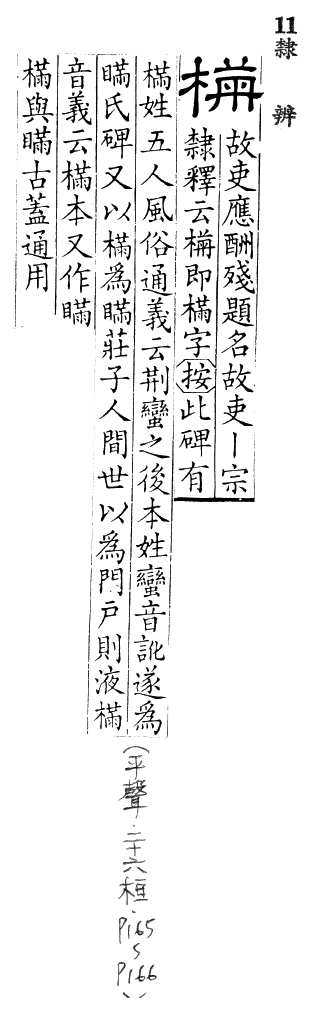 11 隸辨
故吏應酬殘題名故吏丨宗
隸釋云即樠字按此碑有
樠姓五人風俗通義云荆蠻之後本姓蠻音訛遂爲
瞞氏碑又以樠爲瞞莊子人間世以爲門戶則液樠
音義云樠本又作瞞
樠與瞞古蓋通用
(平聲·二十六桓·P165~P166)